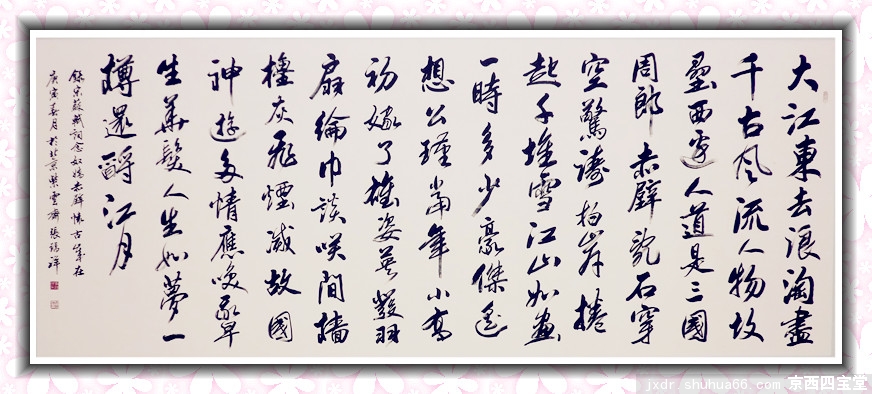 大江東去浪淘盡
千古風流人物故
壘西邊人道是三國
周郎赤壁亂石穿
空驚濤拍岸捲
起千堆雪江山如畫
一時多少豪傑遙
想公瑾當年小喬
初嫁了雄姿英發羽
扇綸巾談咲間檣
櫓灰飛煙滅故國
神遊多情應咲我早
生華髮人生如夢一
樽還酹江月
錄宋蘇軾詞念奴嬌赤壁懷古歲在
庚寅春月於北京紫雲齋張瑞祥
jxdr.shuhua66.com 京西四宝堂